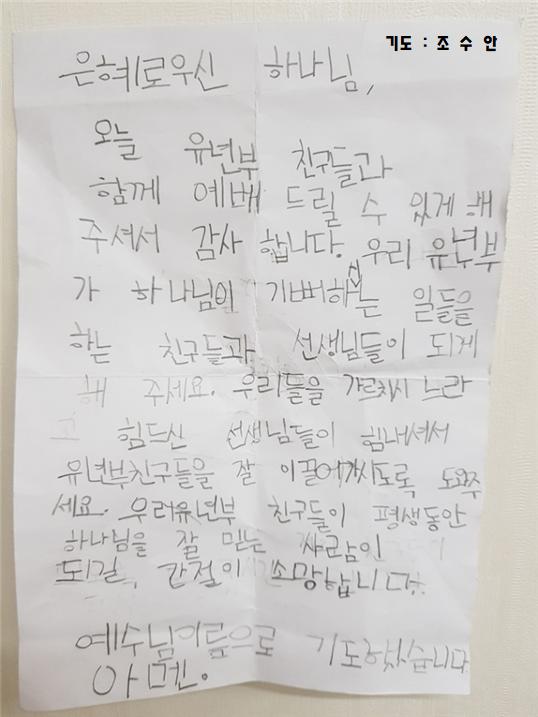 기도 : 조 수 안
은혜로우신 하나님,
오늘 유년부 친구들과
함께 예배 드릴 수 있게 해
주셔서 감사 합니다. 우리 유년부
가 하나님이 기뻐하시는 일들을
하는 친구들과 선생님들이 되게
해 주세요. 우리들을 가르치시 느라
고 힘드신 선생님들이 힘내셔서
유년부친구들을 잘 이끌어가시도록 도와주
세요. 우리유년부 친구들이 평생동안
하나님을 잘 믿는 사람이
되길, 간절이 소망합니다.
예수님이름으로 기도하였습니다
아멘.